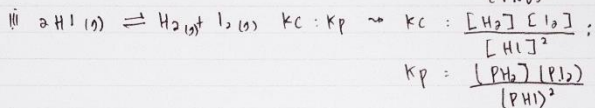 iii 2HI (g) ⇌ H₂(g) + I₂(g) Kc : Kp → Kc : [H₂] [I₂] / [HI]² ;
Kp = (PH₂) (PI₂) / (PHI)²